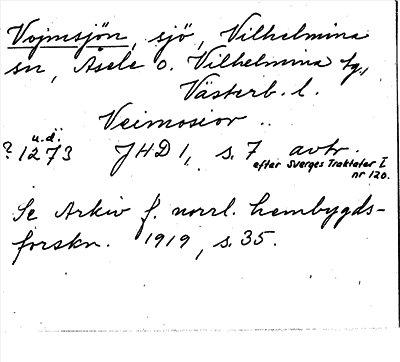 Vojmsjön, sjö, Vilhelmina
sn, Åsele o. Vilhelmina tg,
Västerb. l.
Veimosior ..
u.d.
? 1273 JHD 1, s. 7 avtr.
efter Sverges Traktater I
nr 120.
Se Arkiv f. norrl. hembygds-
forskn. 1919, s. 35.